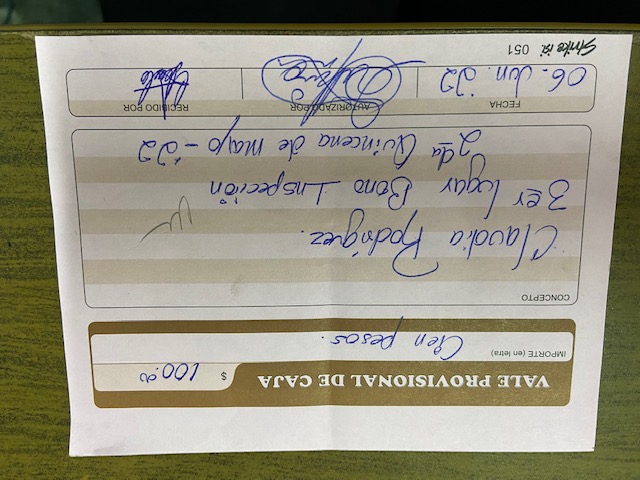 VALE PROVISIONAL DE CAJA $ 100.00
IMPORTE (en letra) Cien pesos.
CONCEPTO
Claudia Rodríguez.
3er lugar Bono Inspección
2da Quincena de mayo - '22
FECHA AUTORIZADO POR RECIBIDO POR
06. Jun. '22
Strike ® 051